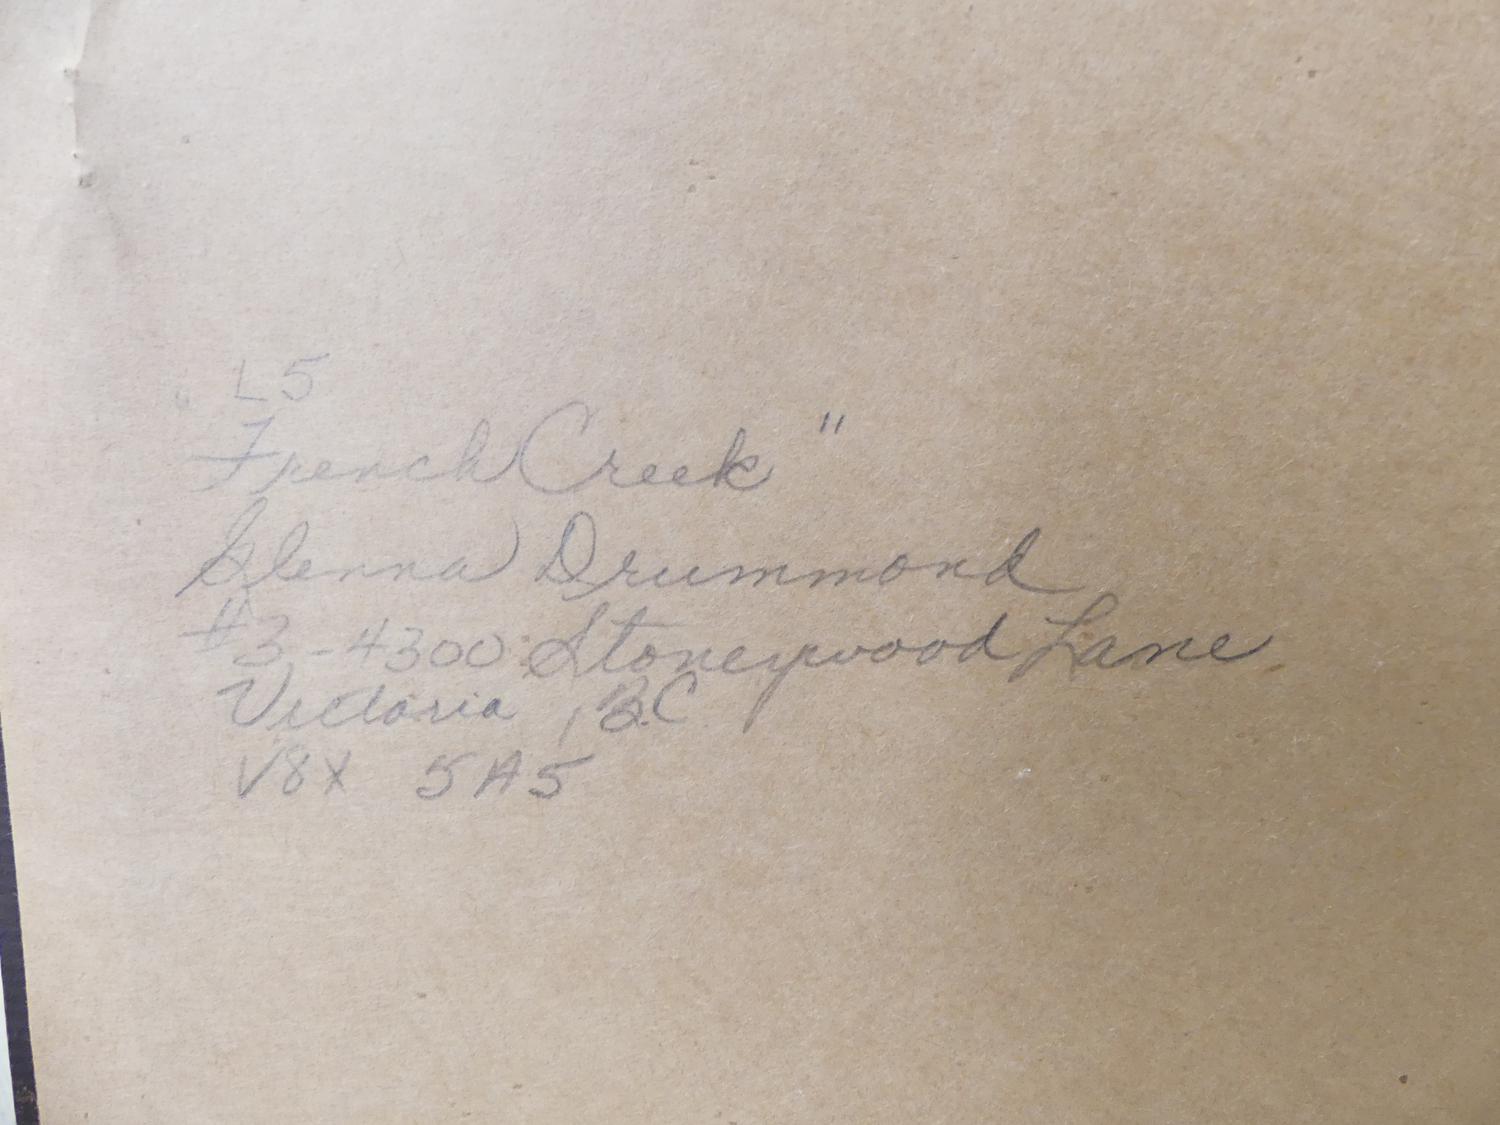 L5
" French Creek "
Glenna Drummond
#3-4300 Stoneywood Lane
Victoria, B.C.
V8X 5A5